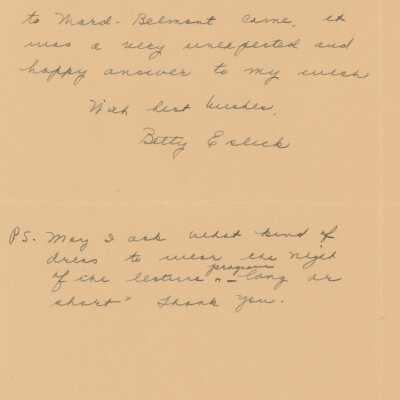 to Ward-Belmont came, it
was a very unexpected and
happy answer to my wish
With best wishes,
Betty Eslick
PS. May I ask what kind of
dress to wear the night
of the lecture program "— long or
short" Thank you.